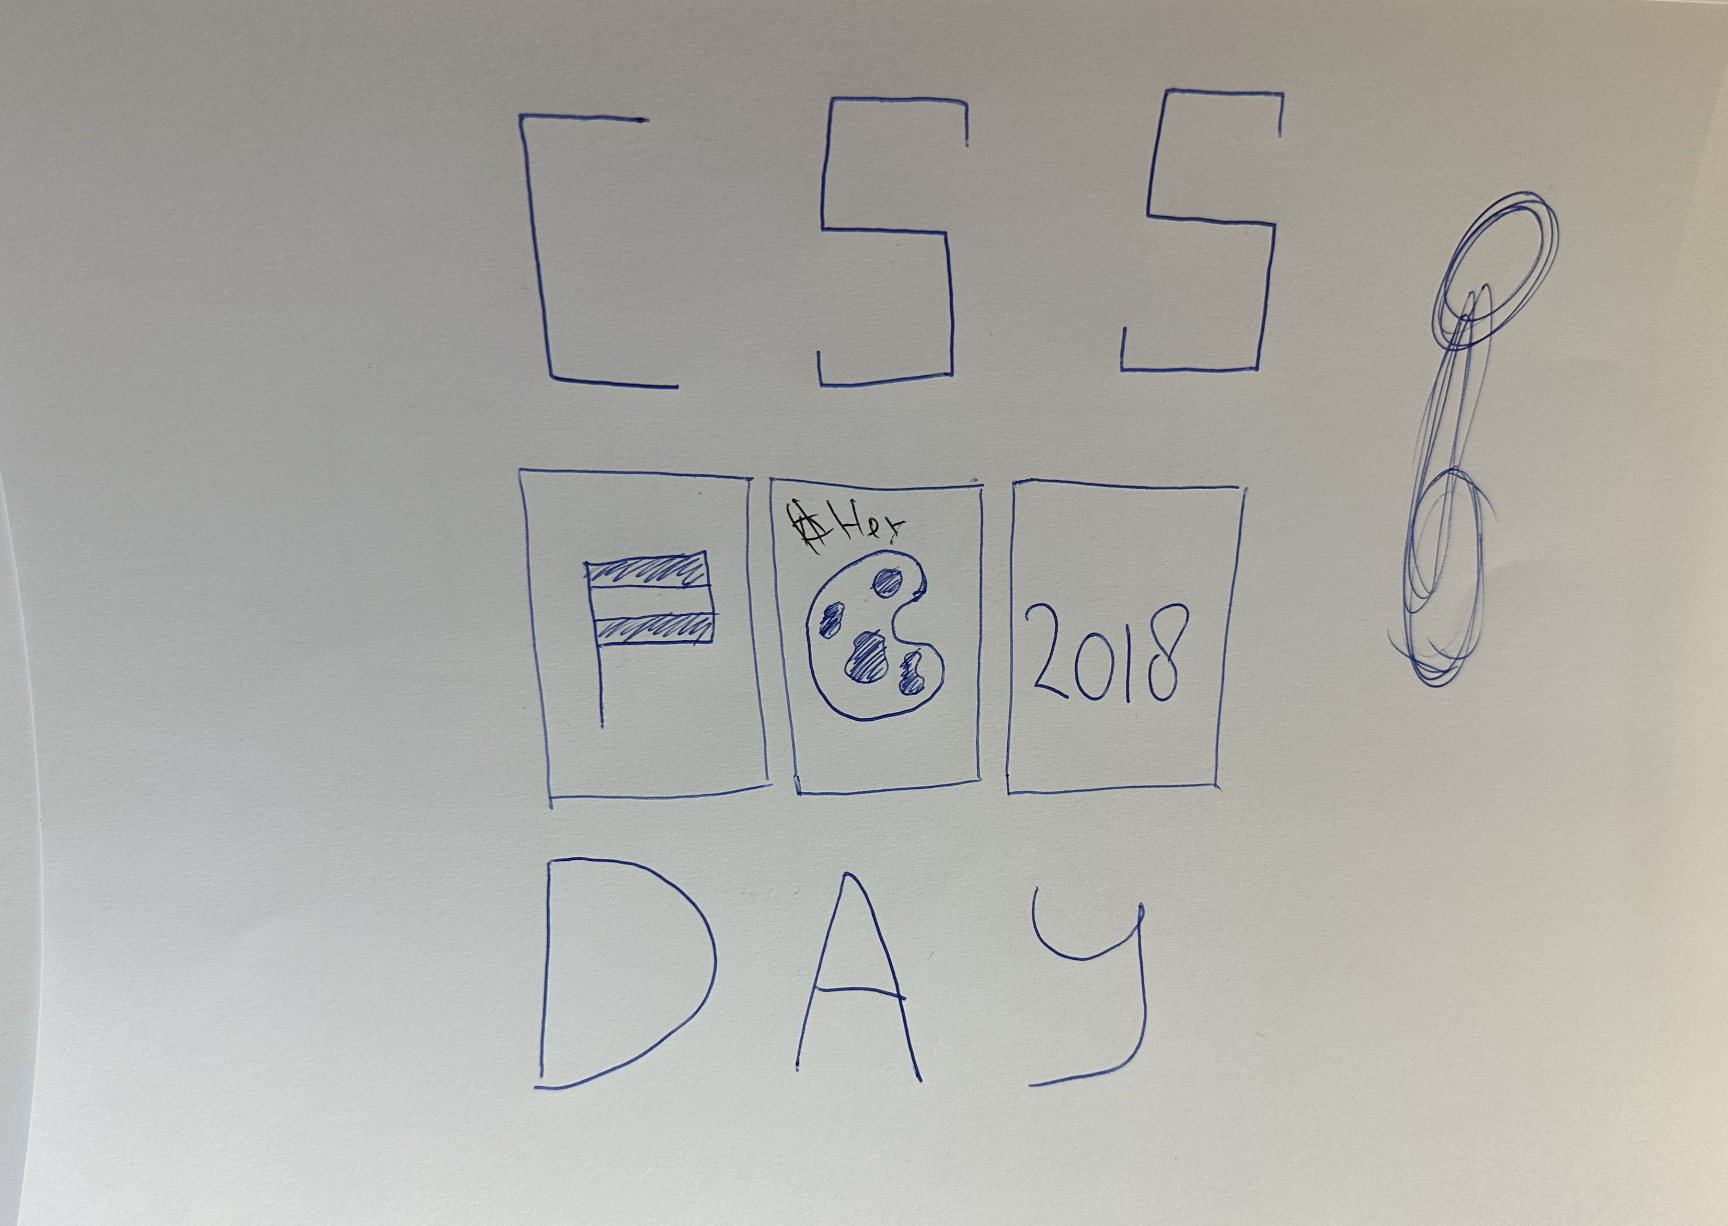 CSS
Hex
2018
DAY